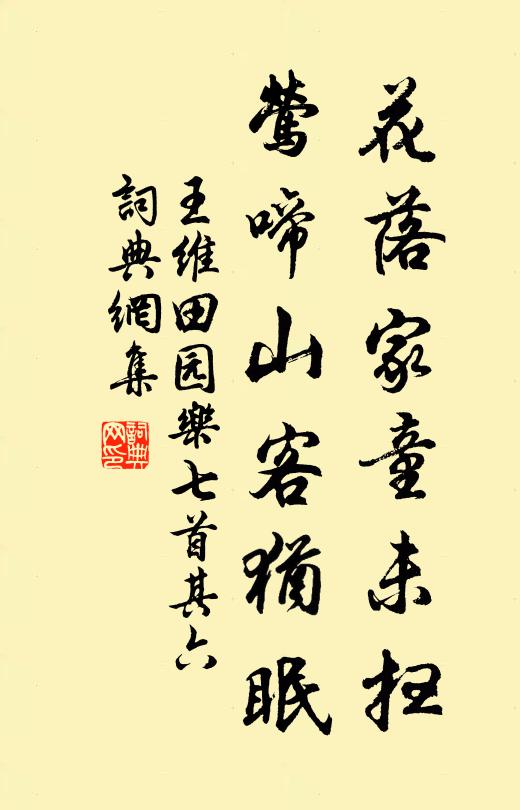 花落家童未扫
鶯啼山客猶眠
王維田园樂七首其六
詞典網集
詞典网印